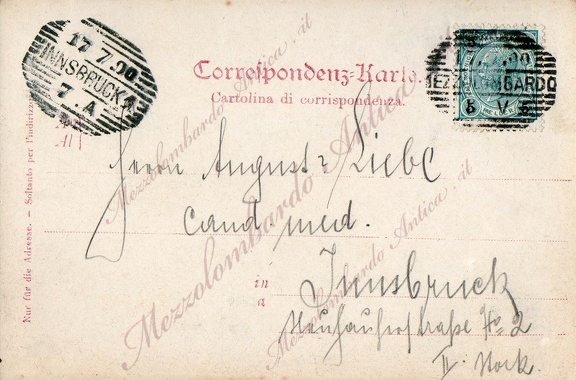 17 7.00
INNSBRUCK 1
7.A
MEZZOLOMBARDO
8 V
Correspondenz-Karte.
Cartolina di corrispondenza.
Herrn August Liebe
cand. med.
in
a
Innsbruck
No 2
II. Stock.
Nur für die Adresse. – Soltanto per l'indirizzo
Mezzolombardo Antica.it
Mezzolombardo Antica.it
Mezzolombardo Antica.it